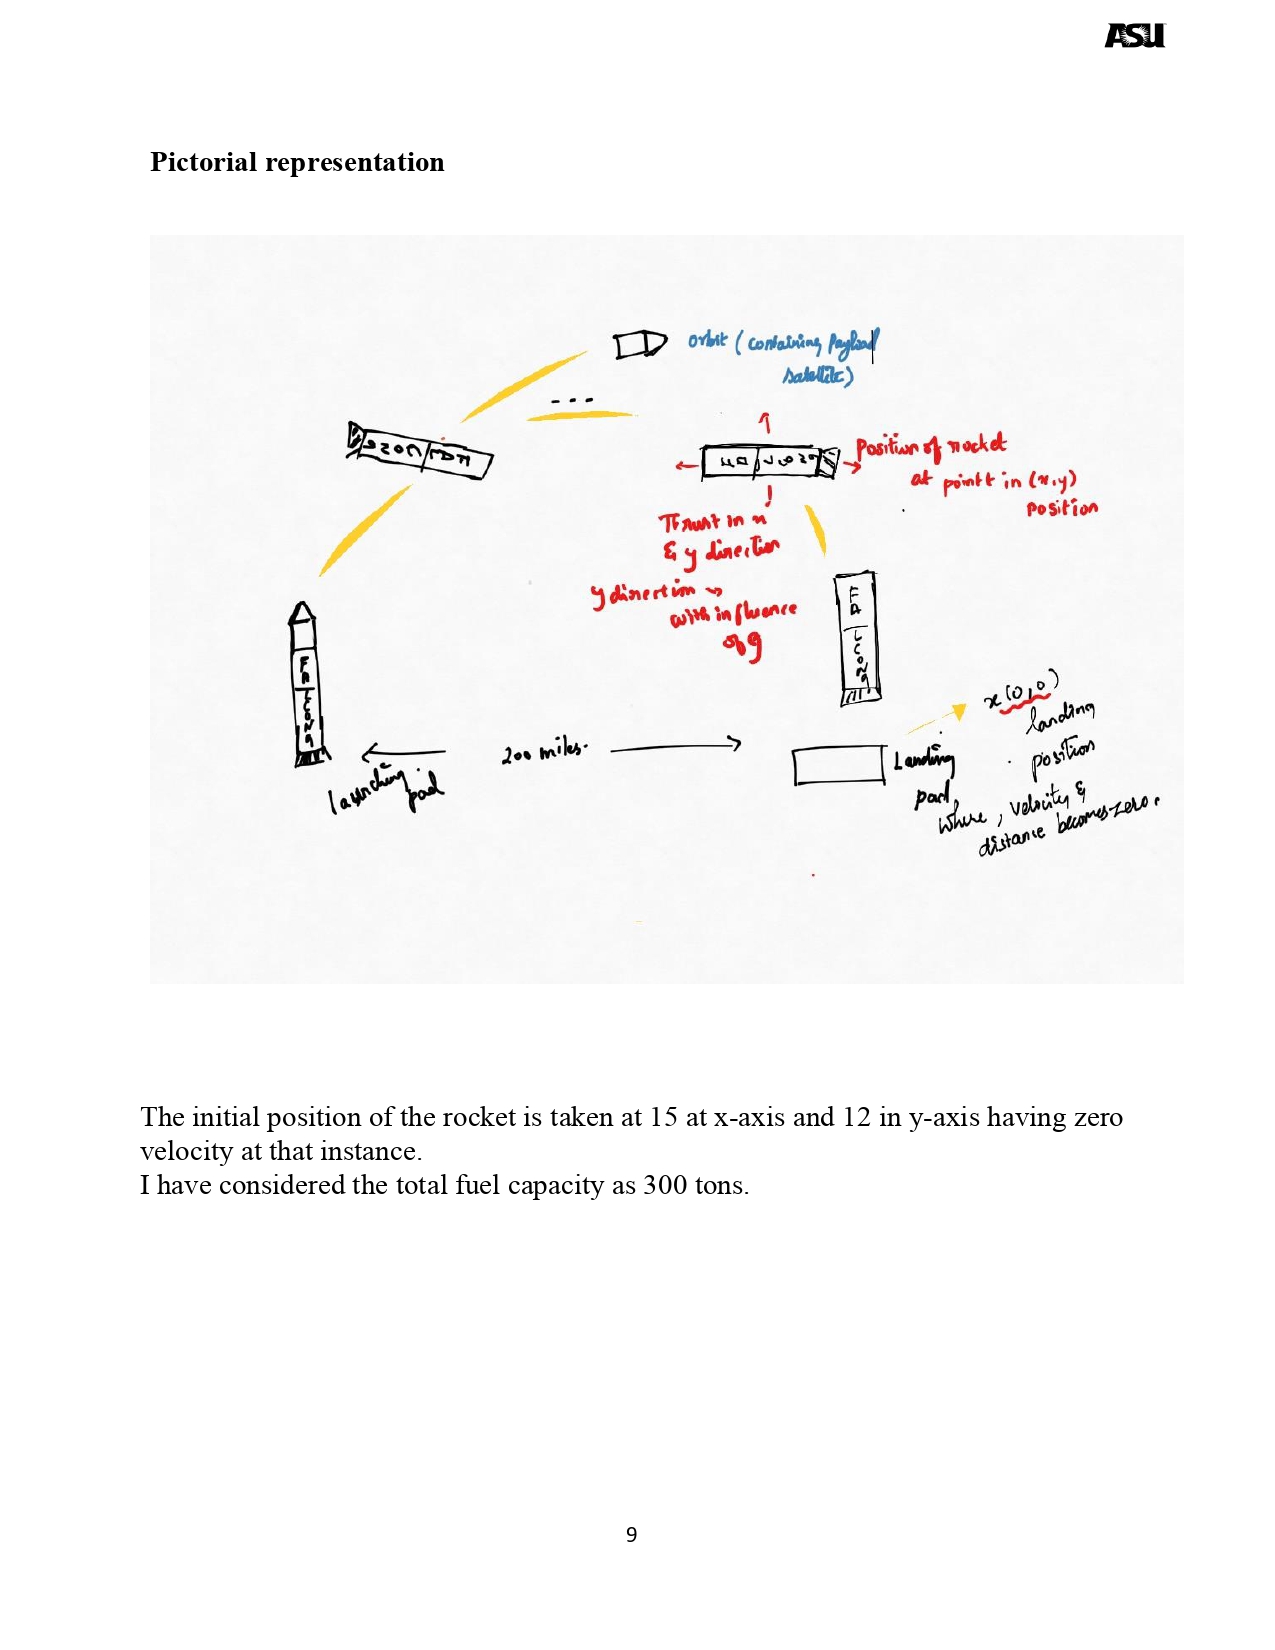 ASU
Pictorial representation
orbit (containing Payload
satellite)
Position of rocket
at point t in (x,y)
position
Thrust in x
& y direction
y direction ↝
with influence
of g
x(0,0)
landing
position
200 miles.
launching
pad
Landing
pad
where, velocity &
distance becomes zero.
The initial position of the rocket is taken at 15 at x-axis and 12 in y-axis having zero
velocity at that instance.
I have considered the total fuel capacity as 300 tons.
9